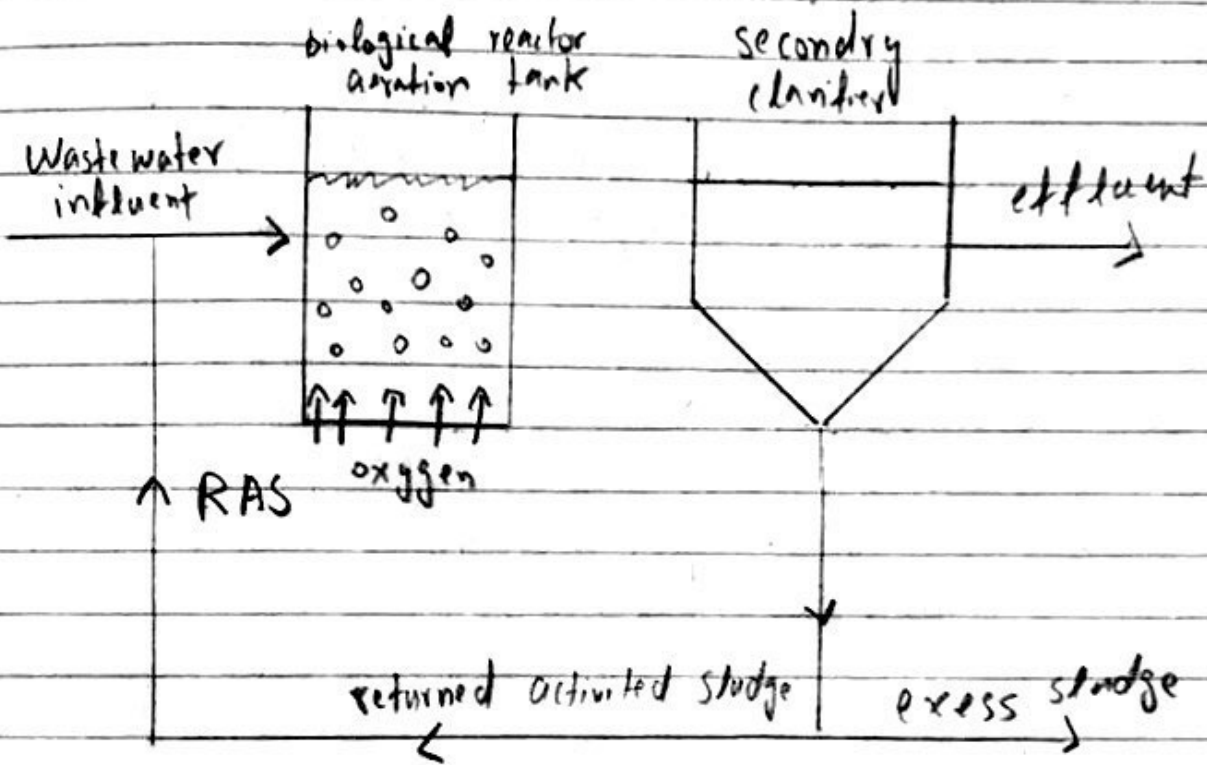 biological reactor
aeration tank
secondry
clarifier
Wastewater
influent
effluent
oxygen
RAS
returned activited sludge
exess sludge